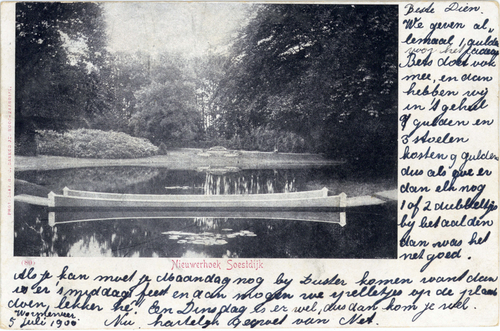 Beste Dien.
We geven al„
lemaal 1 gulden
voor het
Bets doet ook
mee, en dan
hebben wij
in 's geheel
gulden en
3 stoelen
kosten 9 gulden
dus als we er
dan elk nog
1 of 2 dubbeltjes
bij betaalden
dan was het
net goed.
Nieuwerhoek Soestdijk
Als je kan moet je Maandag nog bij Zuster komen want dan
is er 's middags feest en dan mogen we spelletjes op de plaats
doen, lekker hé! En Dinsdag is er wel, dus dan kom je wel.
Wormerveer.
5 Juli 1900 Nu, hartelijk gegroet van Net.